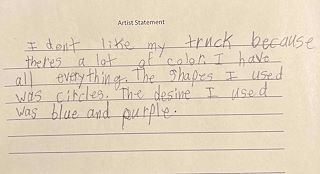 Artist Statement
I dont like my truck because
theres a lot of color. I have
all everything. The shapes I used
was circles. The desine I used
was blue and purple.